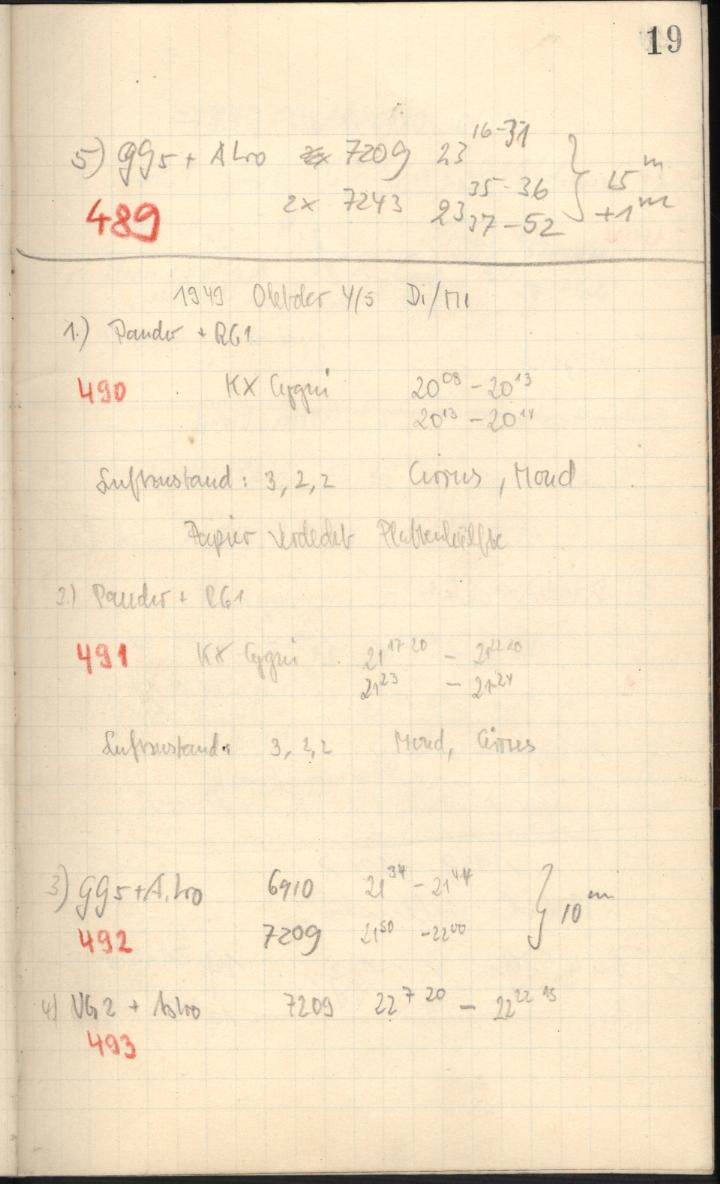 19
5) GG5 + Astro 7209 23 16-31 } 15 m
489 2x 7243 23 35-36 +1 m
37-52
1949 Oktober 4/5 Di/Mi
1.) Pander + RG1
490 KX Cygni 20 08 - 20 13
20 13 - 20 14
Luftzustand: 3, 2, 2 Cirrus, Mond
Papier verdeckt Plattenhälfte
2.) Pander + RG1
491 KX Cygni 21 17 20 - 21 22 20
21 23 - 21 24
Luftzustand: 3, 2, 2 Mond, Cirrus
3) GG5 + Astro 6910 21 34 - 21 44 } 10 m
492 7209 21 50 - 22 00
4) VG2 + Astro 7209 22 7 20 - 22 22 15
493